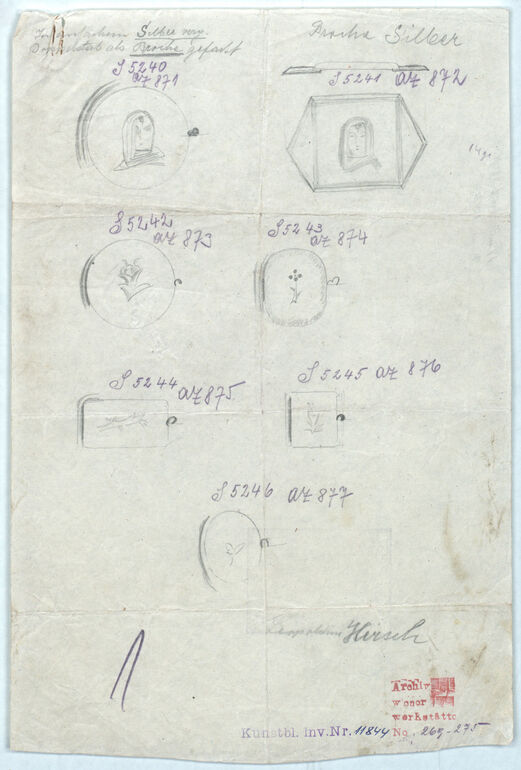 Silber verg.
als Broche gefasst
Broche Silber
S 5240
az 871
S 5241 az 872
S 5242
az 873
S 5243
az 874
S 5244
az 875
S 5245 az 876
S 5246 az 877
Leopoldine Hirsch
Archiv
wiener
werkstätte
Kunstbl. Inv. Nr. 11844 No. 269-275